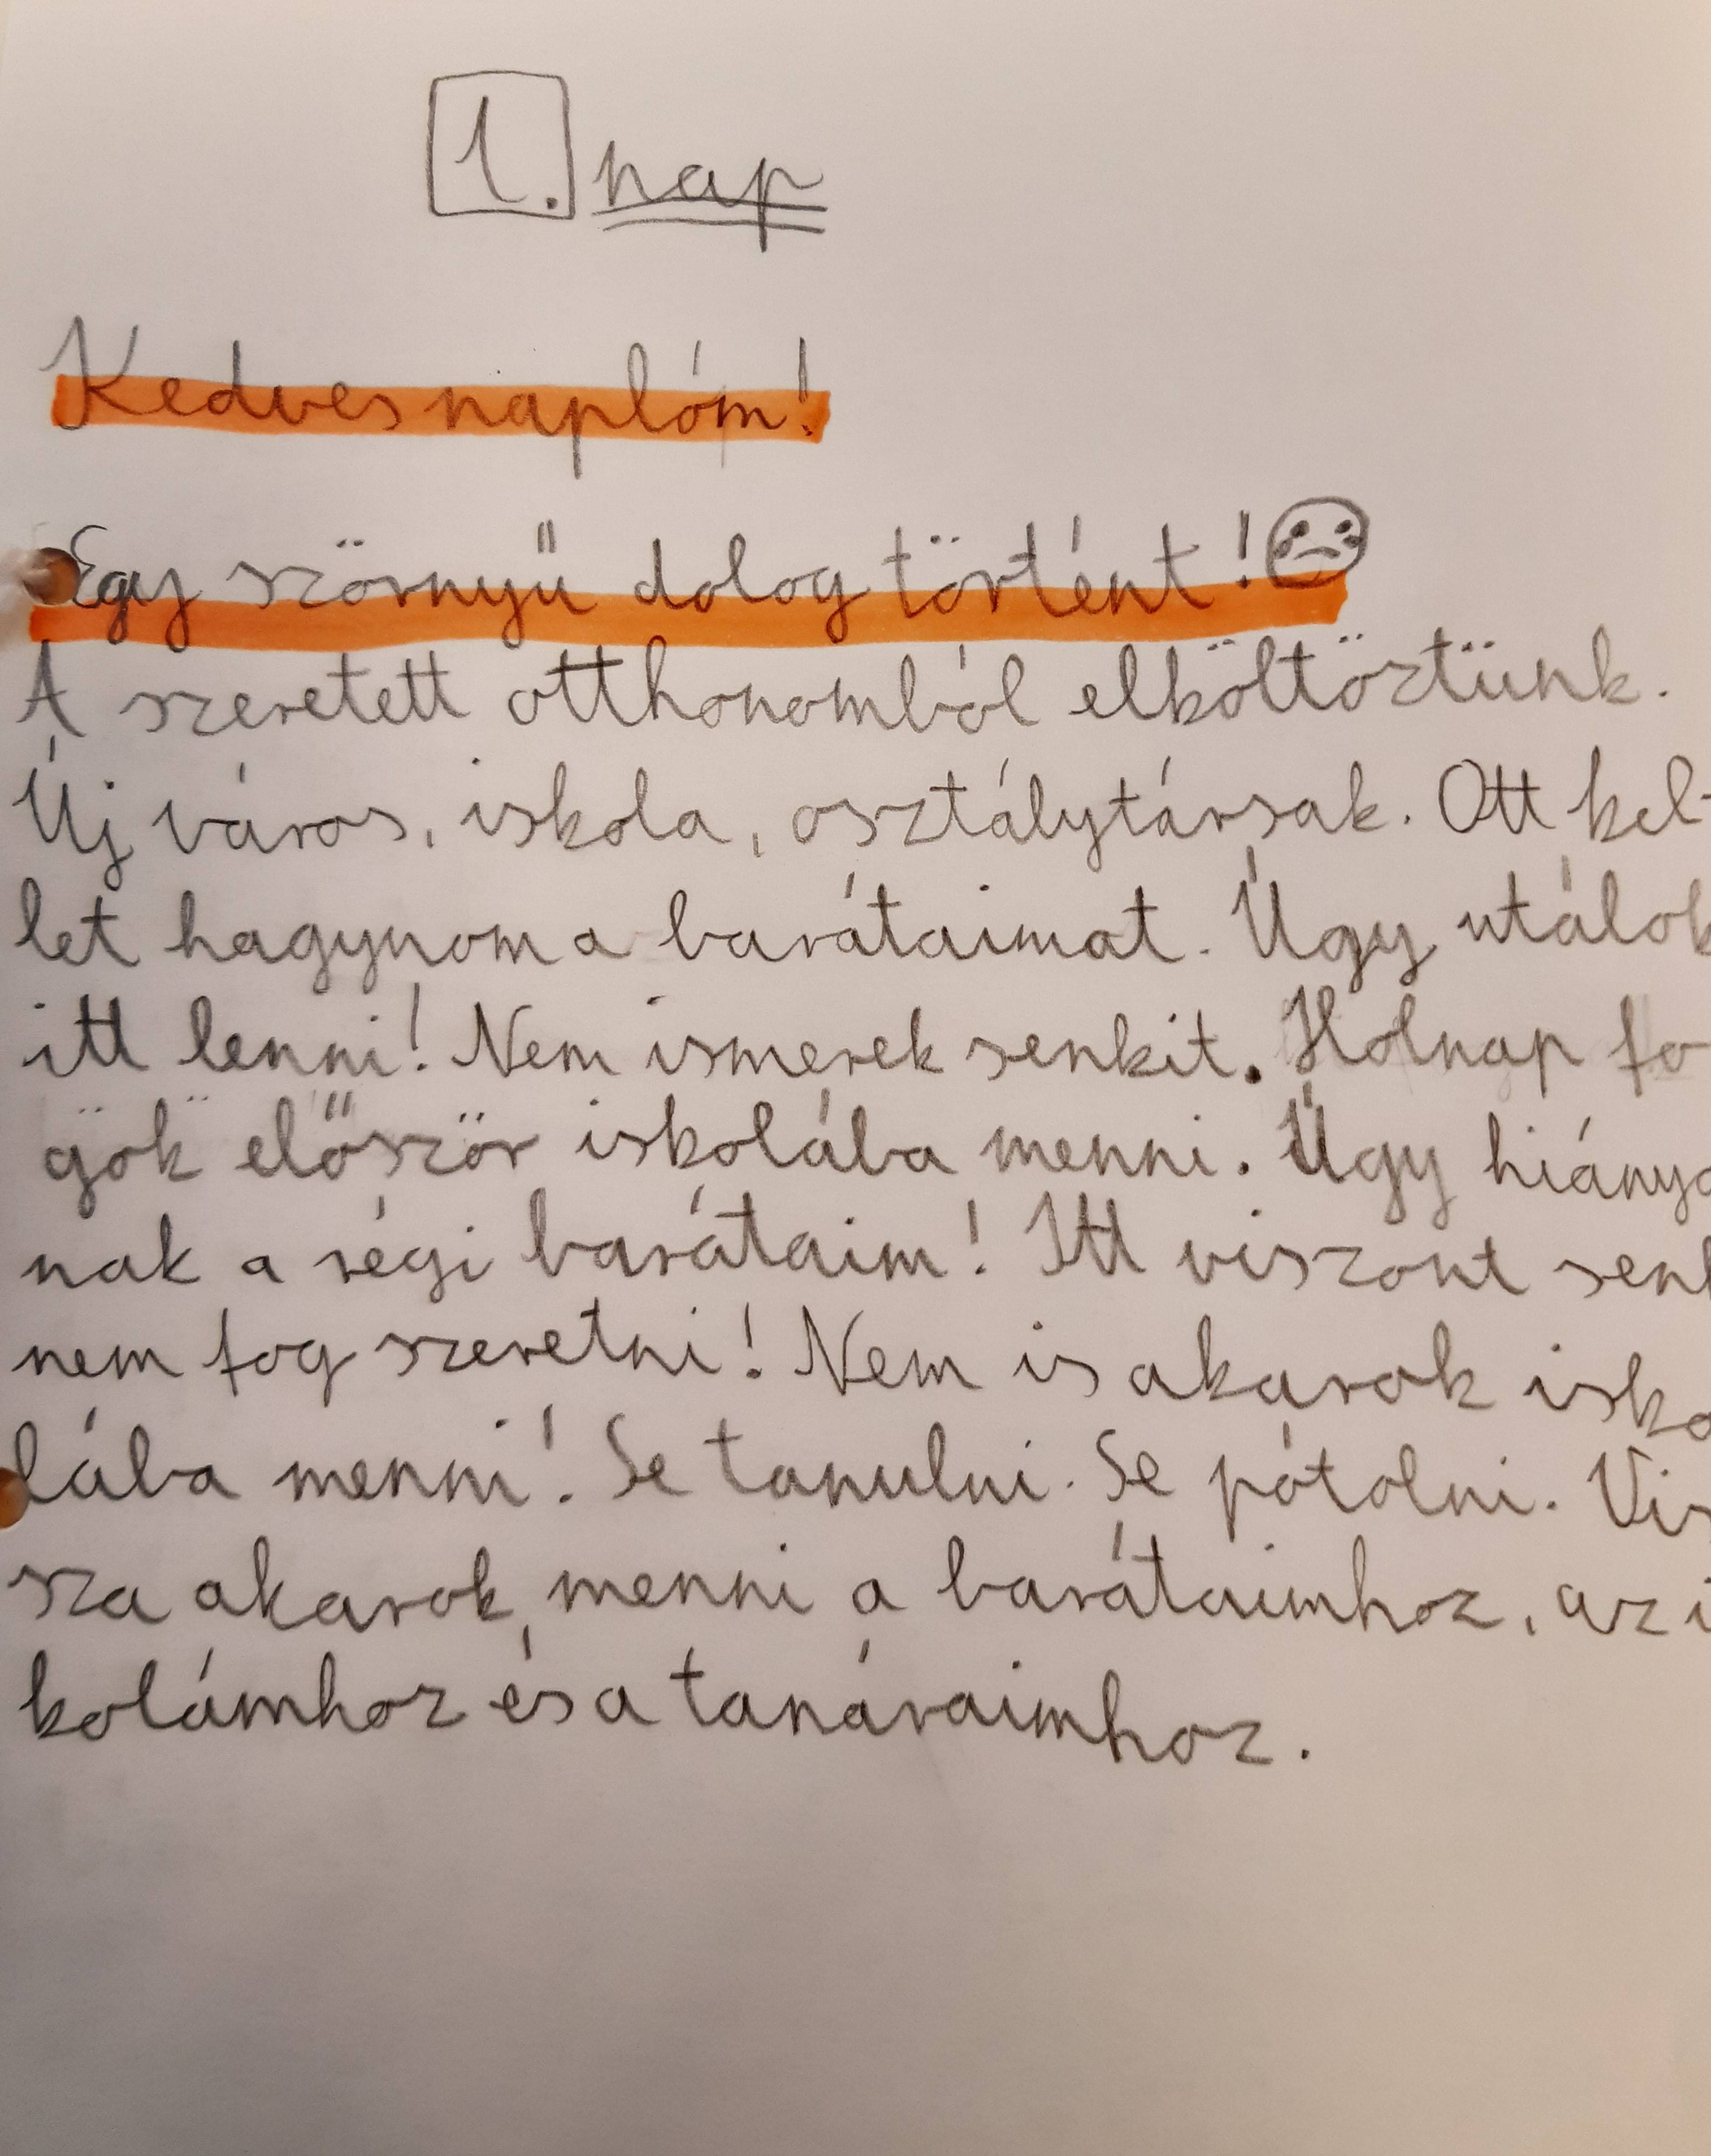 1. nap
Kedves naplóm!
Egy szörnyű dolog történt!
A szeretett otthonomból elköltöztünk.
Új város, iskola, osztálytársak. Ott kel-
let hagynom a barátaimat. Úgy utálok
itt lenni! Nem ismerek senkit. Holnap fo
gök először iskolába menni. Úgy hiányo
nak a régi barátaim! Itt viszont senk
nem fog szeretni! Nem is akarok isko
lába menni! Se tanulni. Se pótolni. Vis
sza akarok menni a barátaimhoz, az i
kolámhoz és a tanáraimhoz.